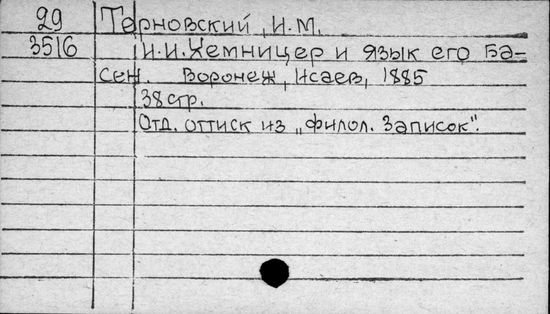 29 Терновский, И.М.
3516 И.И.Хемницер и язык его ба-
сен. Воронеж, Исаев, 1885
38 стр.
Отд. оттиск из „Филол. Записок".